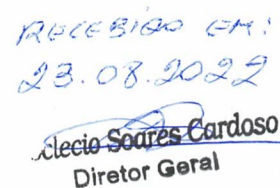 RECEBIDO EM:
23.08.2022
Clecio Soares Cardoso
Diretor Geral